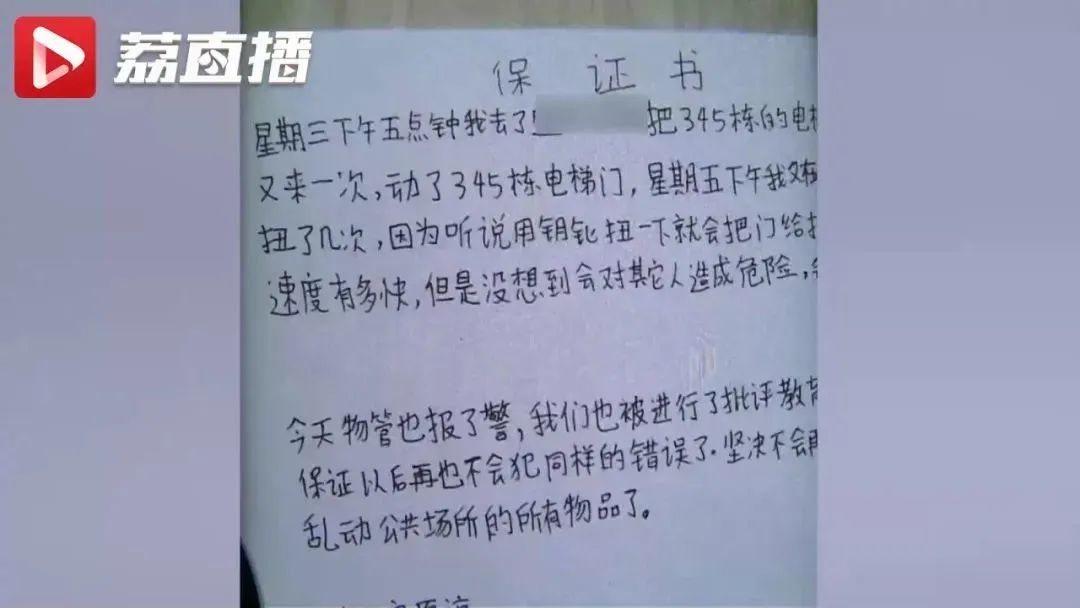 荔直播
保 证 书
星期三下午五点钟我去了 把345栋的电梯
又来一次,动了345栋电梯门,星期五下午我又在
扭了几次,因为听说用钥匙扭一下就会把门给打
速度有多快,但是没想到会对其它人造成危险,
今天物管也报了警,我们也被进行了批评教育
保证以后再也不会犯同样的错误了.坚决不会再
乱动公共场所的所有物品了。